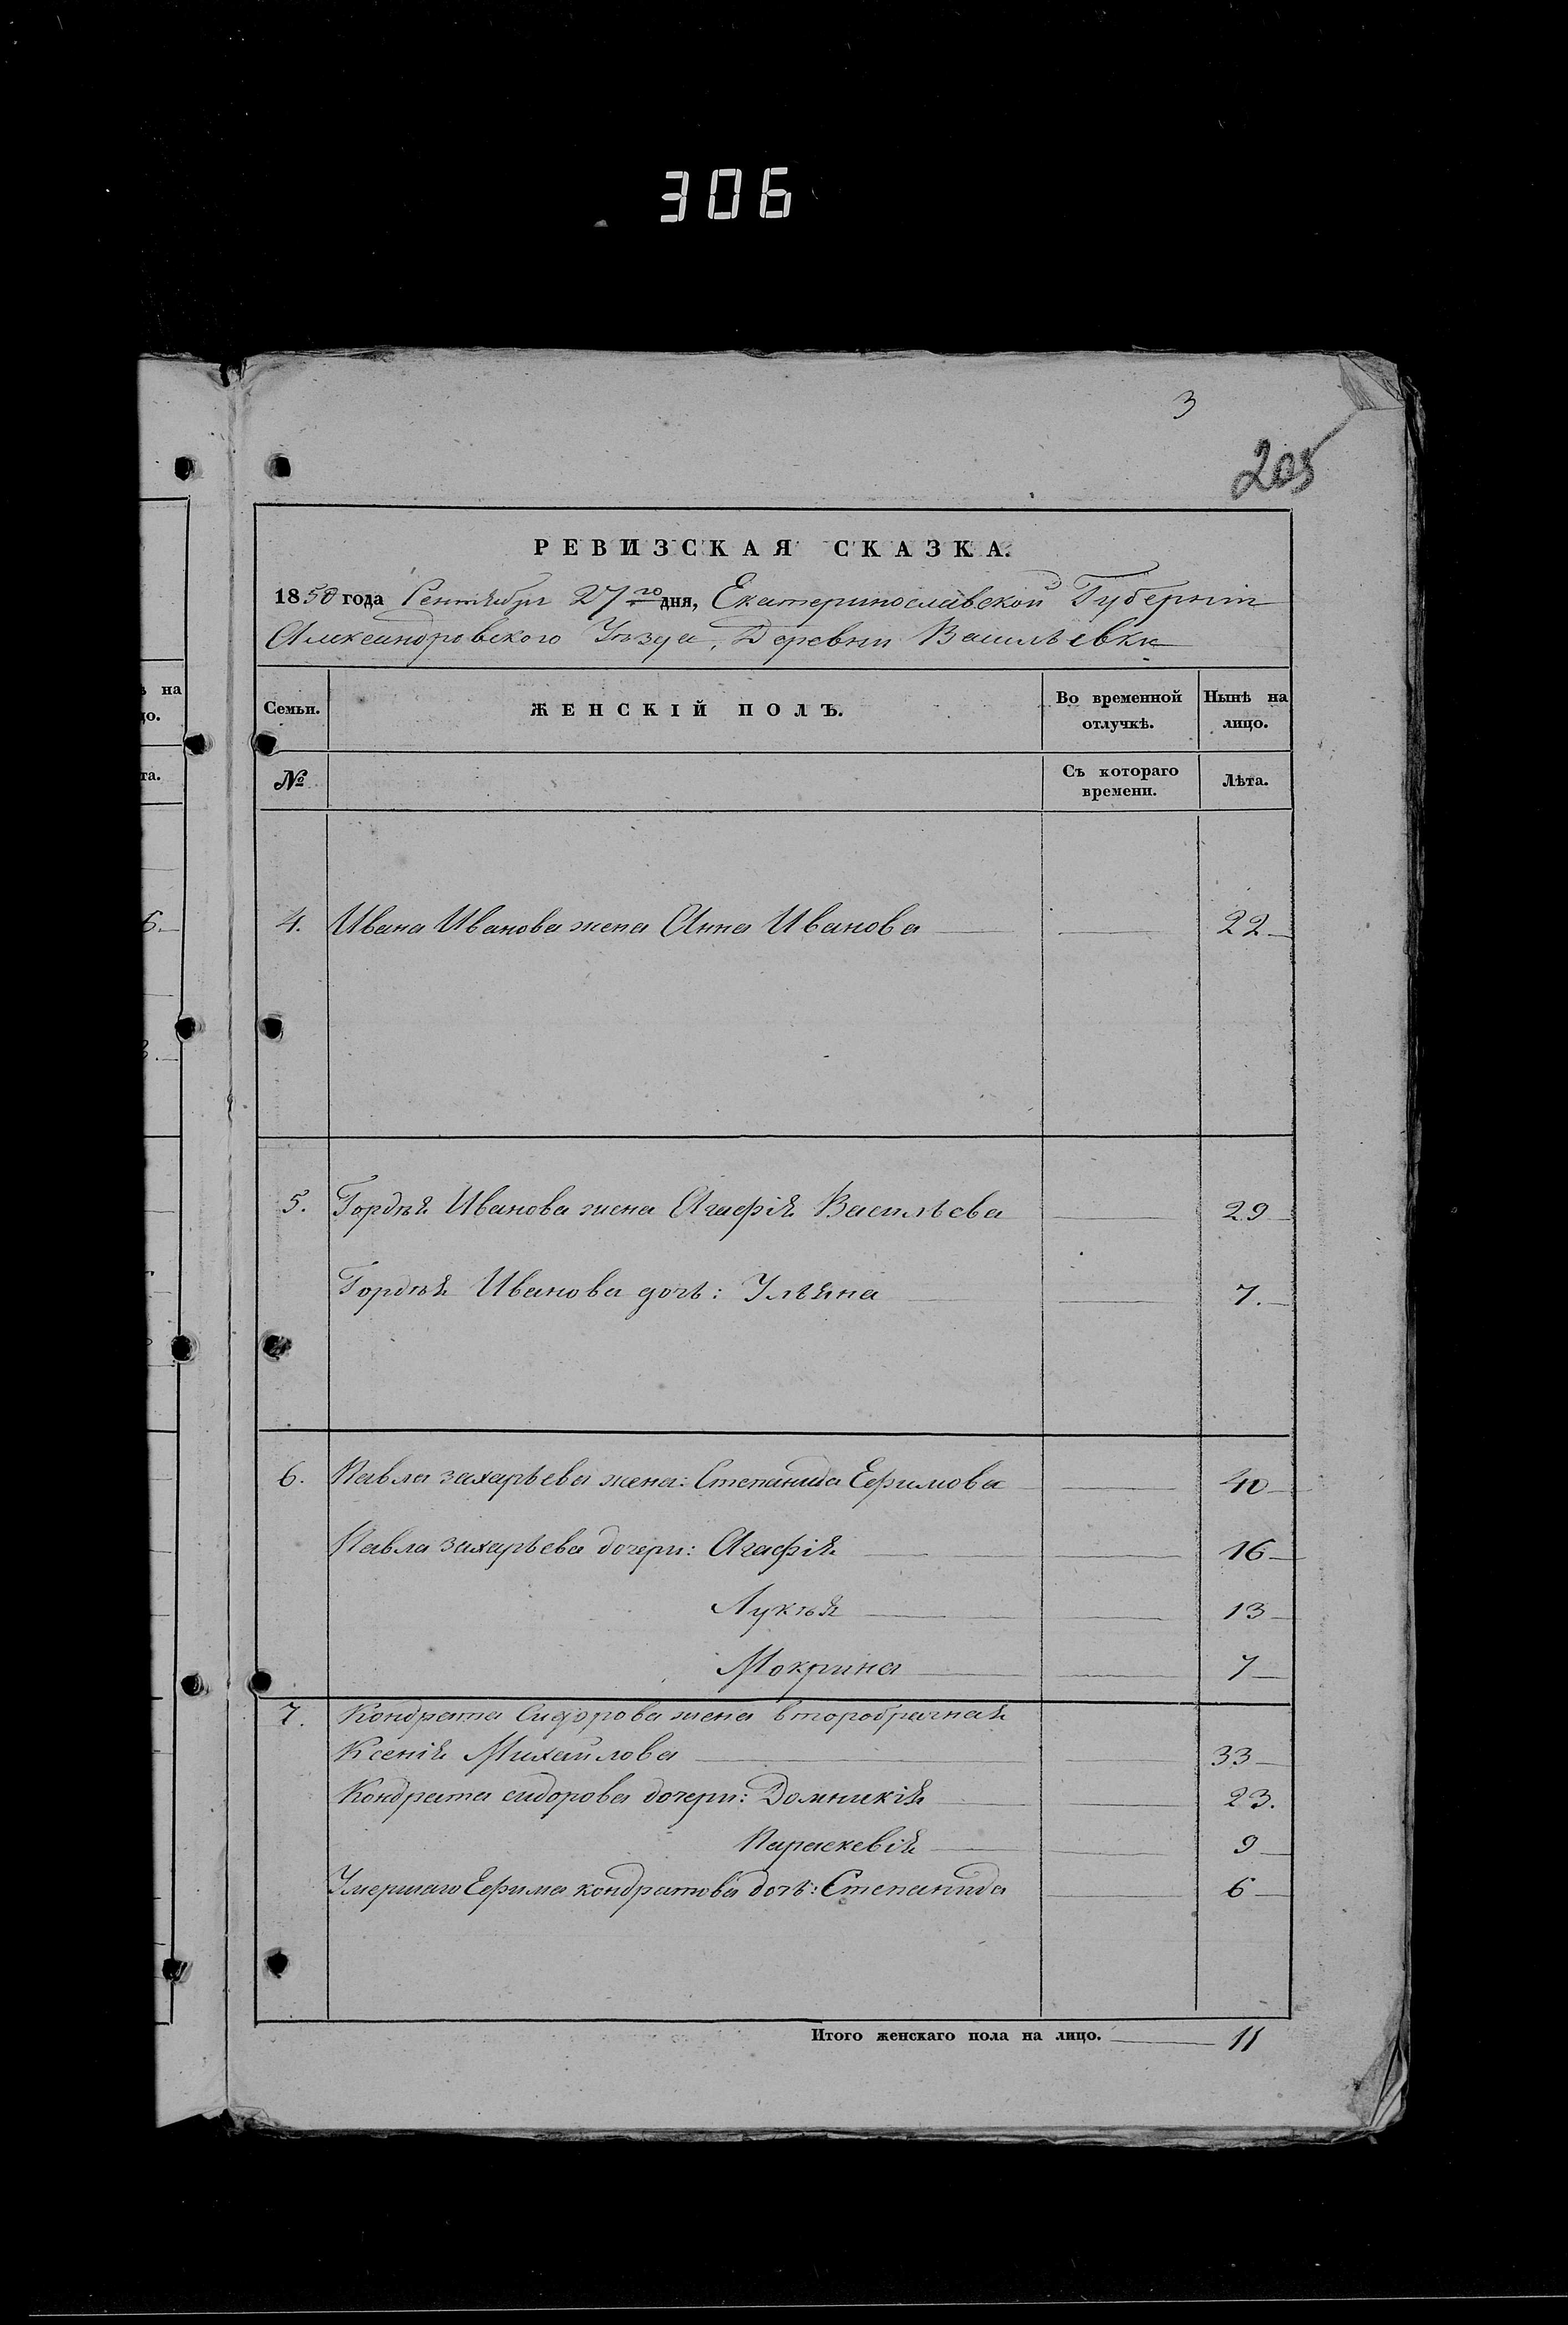 306
3
205
РЕВИЗСКАЯ СКАЗКА.
1850 года Сентября 27го дня, Екатеринославской Губерніи
Александровского Уѣзда, Деревни Васильевки
ѣ на
цо.
та.
Семьи. ЖЕНСКІЙ ПОЛЪ. Во временной отлучкѣ. Нынѣ на лицо.
№ Съ котораго времени. Лѣта.
6.
4. Ивана Иванова жена Анна Иванова 22
5. Гордѣя Иванова жена Агафія Васильева 29
Гордѣя Иванова дочь: Ульяна 7.
6. Павла захарьева жена: Степанида Ефимова 40
Павла захарьева дочери: Агафія 16
Лукѣя 13
Мокрина 7
7. Кондрата Сидорова жена второбрачная
Ксенія Михайлова 33
Кондрата сидорова дочери: Домникія 23.
Параскевія 9
Умершаго Ефима кондратова дочь: Степанида 6
Итого женскаго пола на лицо. 11